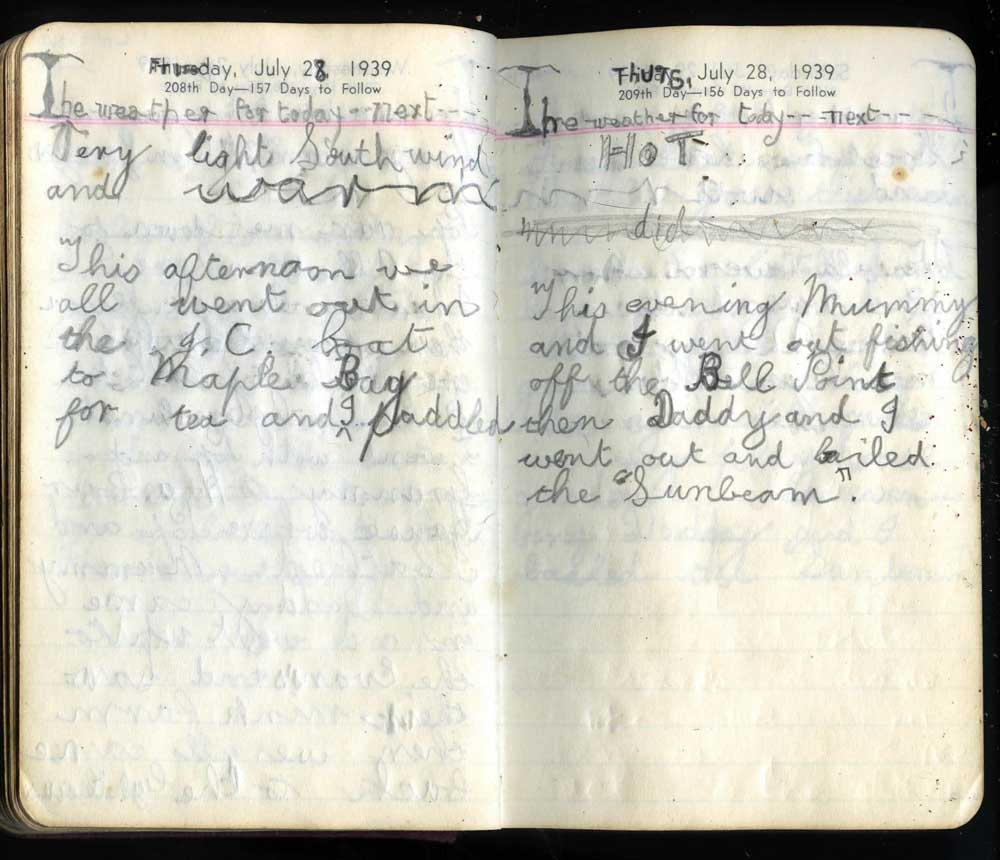 Thursday, July 28, 1939
208th Day—157 Days to Follow
The weather for today -- next ---
Very light South wind
and warm
This afternoon we
all went out in
the J.C. boat
to Maple Bay
for tea and I paddled
Thurs, July 28, 1939
209th Day—156 Days to Follow
The weather for today -- next --
HOT
did
This evening Mummy
and I went out fishing
off the Bell Point
then Daddy and I
went out and bailed
the "Sunbeam".